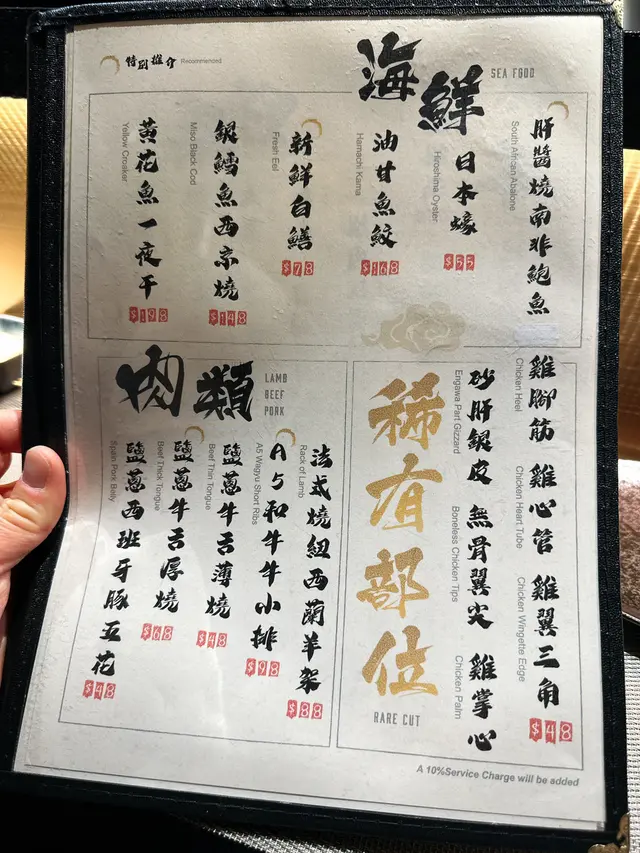 特別推介 Recommended
海鮮
SEA FOOD
肝醬燒南非鮑魚
South African Abalone
日本蠔
Hiroshima Oyster
$55
油甘魚鮫
Hamachi Kama
$168
新鮮白鱔
Fresh Eel
$78
銀鱈魚西京燒
Miso Black Cod
$148
黃花魚一夜干
Yellow Croaker
$198
稀有部位
RARE CUT
雞腳筋
Chicken Heel
雞心管
Chicken Heart Tube
雞翼三角
Chicken Wingette Edge
$48
砂肝銀皮
Engawa Part Gizzard
無骨翼尖
Boneless Chicken Tips
雞掌心
Chicken Palm
肉類
LAMB
BEEF
PORK
法式燒紐西蘭羊架
Rack of Lamb
$88
A5和牛牛小排
A5 Wagyu Short Ribs
$98
鹽蔥牛舌薄燒
Beef Thin Tongue
$48
鹽蔥牛舌厚燒
Beef Thick Tongue
$68
鹽蔥西班牙豚五花
Spain Pork Belly
$48
A 10%Service Charge will be added